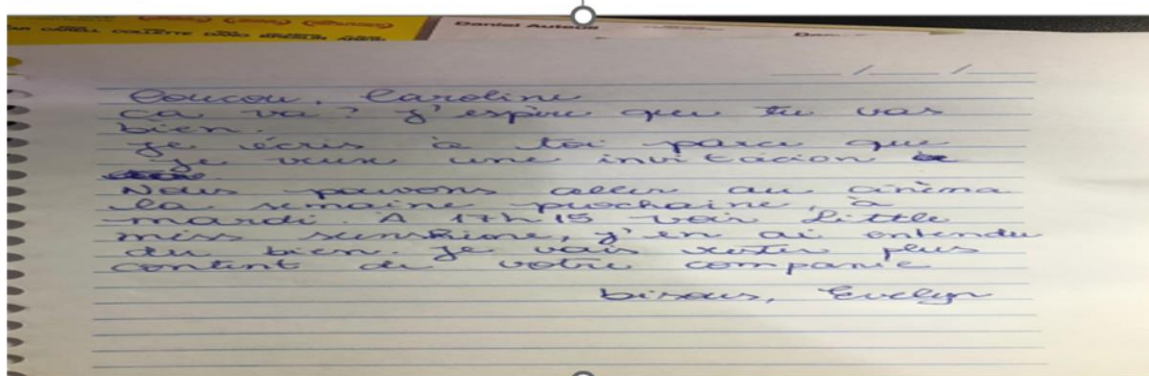 CARELL COLLETTE DANO BRESLIN ARKIN
Daniel Auteuil
Coucou, Caroline
ça va? J'espère que tu vas
bien.
Je écris à toi parce que
je veux une invitacion
Nous pouvons aller au cinèma
la semaine prochaine, à
mardi. À 17h15 voir Little
miss sunshione, j'en ai entendu
du bien. Je vais rester plus
content de votre companie
bisous, Evelyn